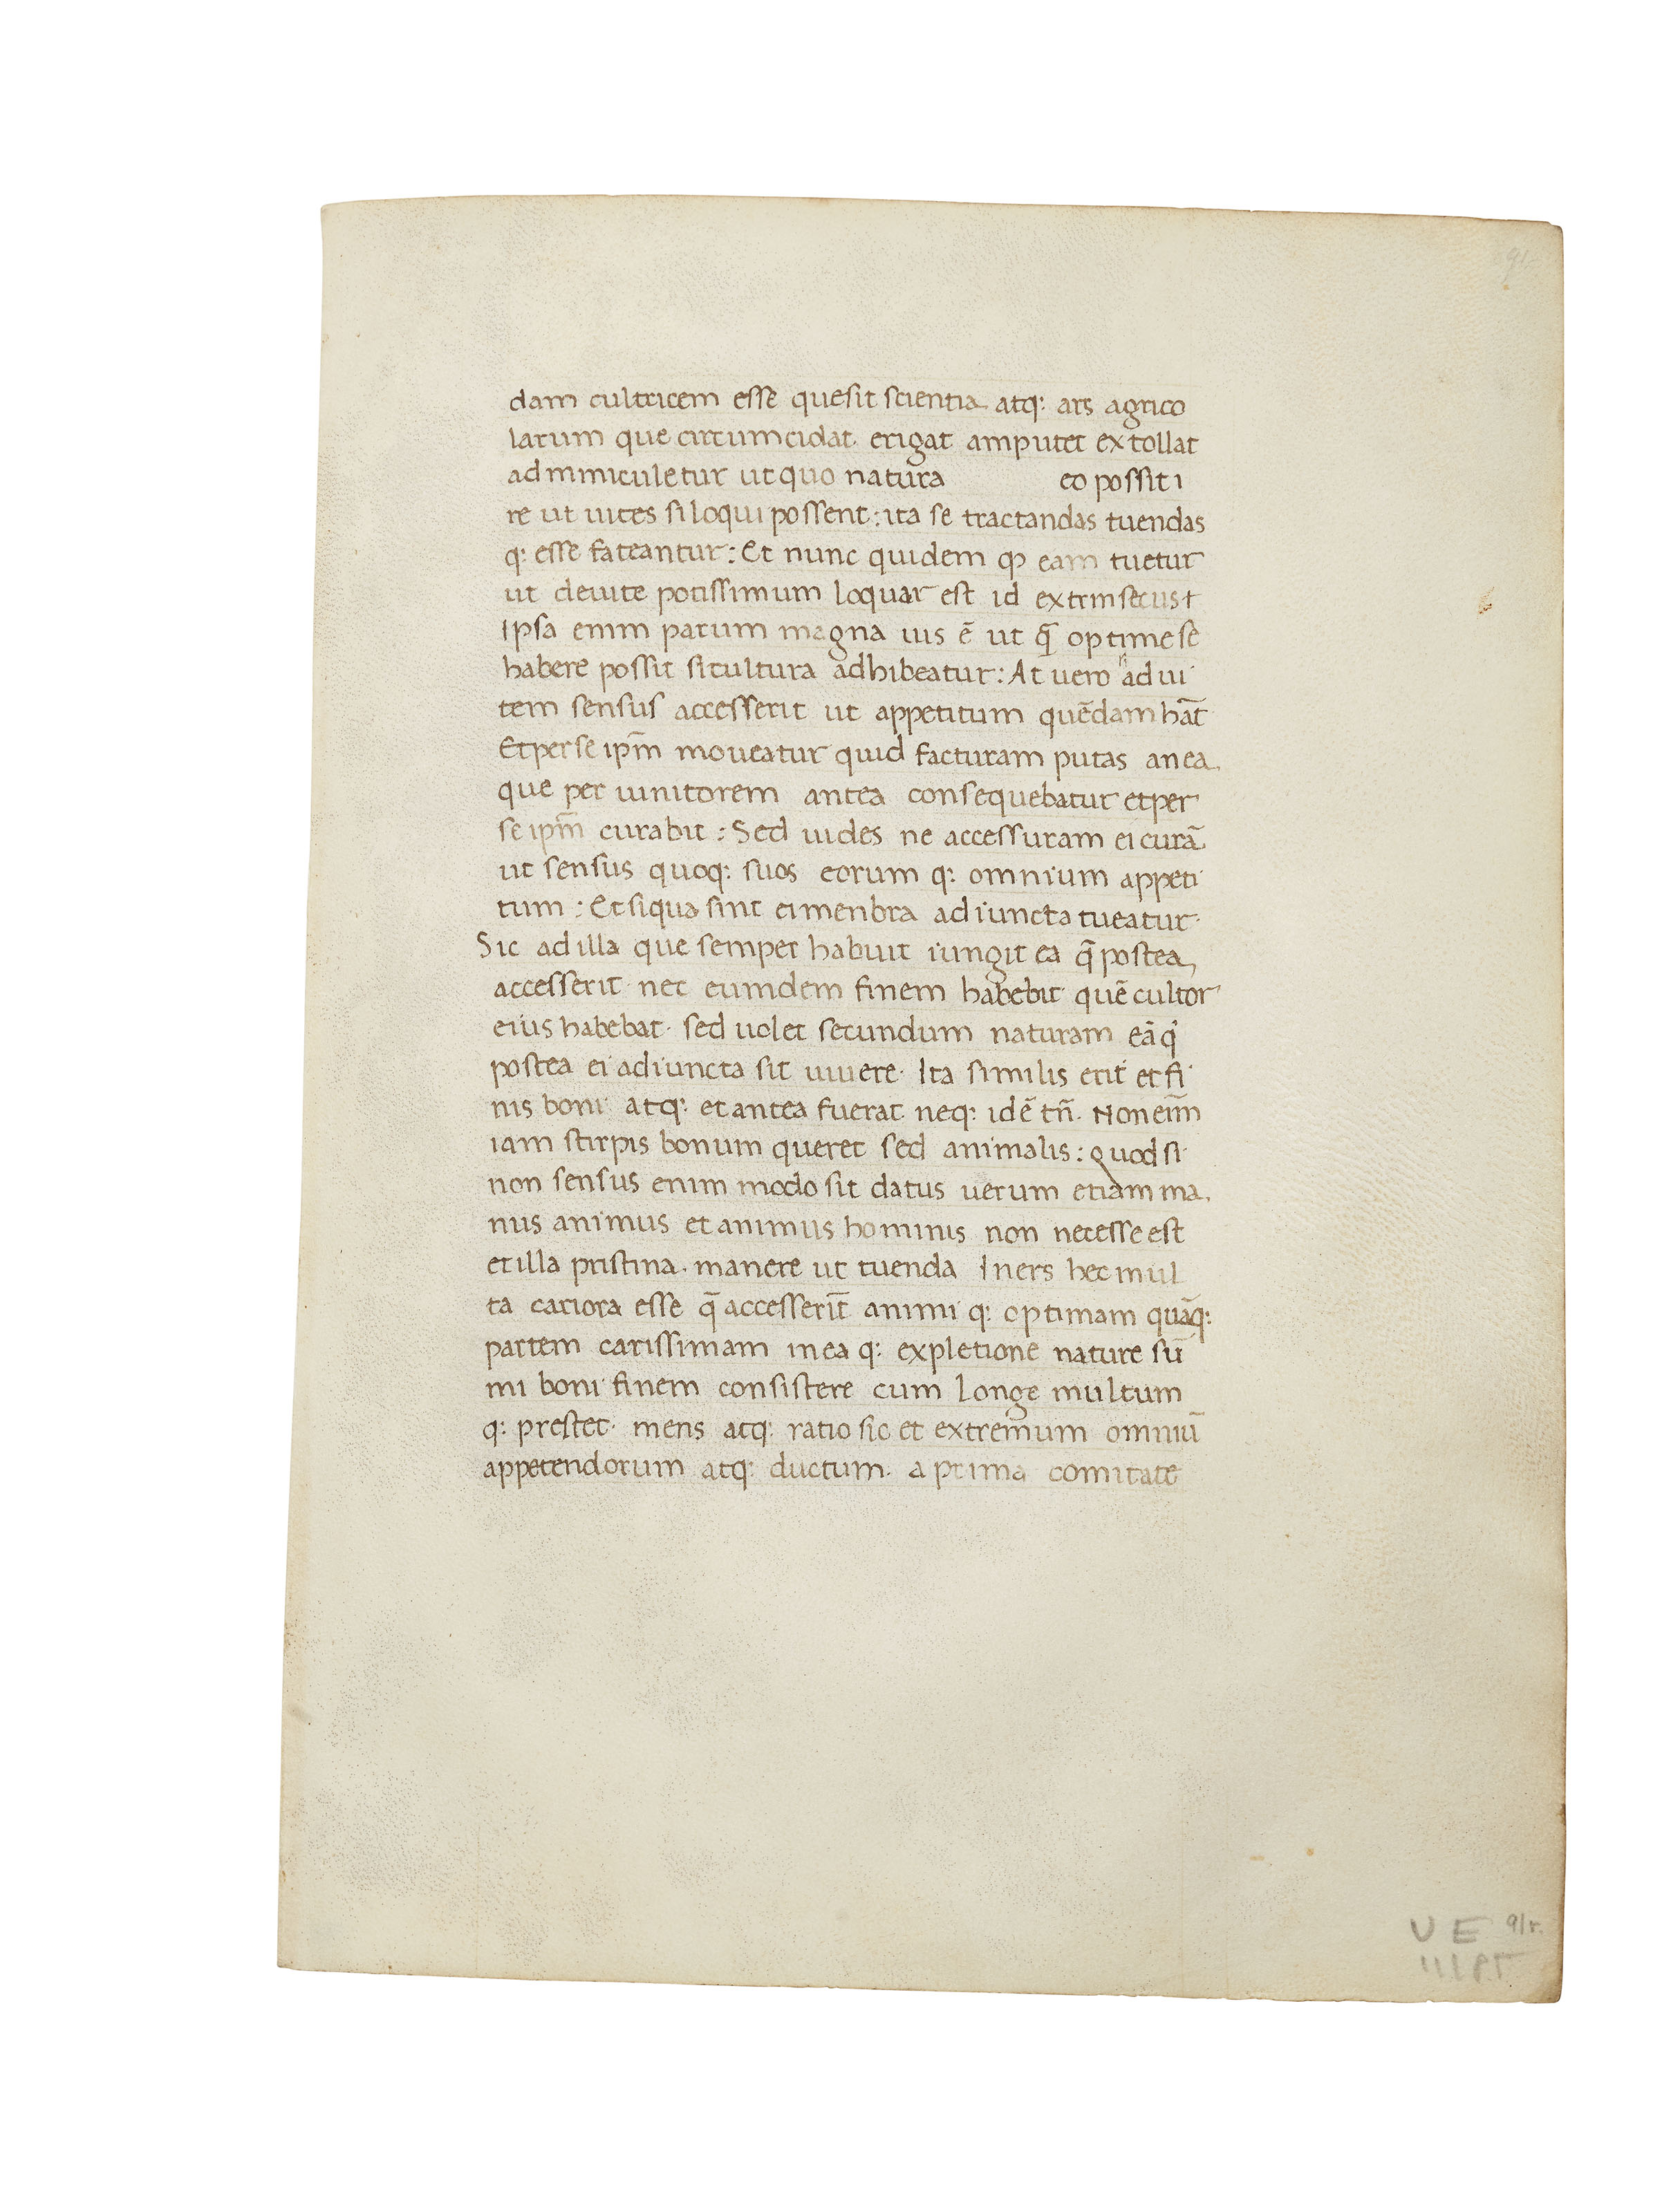 91
dam cultricem esse quesit scientia atq: ars agrico
larum que circumcidat. erigat amputet extollat
adminiculetur ut quo natura eo possit i
re ut uites si loqui possent: ita se tractandas tuendas
q: esse fateantur: Et nunc quidem qp eam tuetur
ut deuite potissimum loquar est id extrinsecus t
Ipsa enim parum magna uis ē ut q̄ optime se
habere possit si cultura adhibeatur: At uero si ad ui
tem sensus accesserit ut appetitum quēdam hāt
Et per se ipm̄ moueatur quid facturam putas an ea
que per uinitorem antea consequebatur et per
se ipm̄ curabit: Sed uides ne accessuram ei curā
ut sensus quoq: suos eorum q: omnium appeti
tum: Et siqua sint ei menbra adiuncta tueatur.
Sic ad illa que semper habuit iungit ea q̄ postea
accesserit nec eumdem finem habebit quē cultor
eius habebat. sed uolet secundum naturam eā q
postea ei adiuncta sit uiuere. Ita similis erit et fi
nis boni atq: et antea fuerat neq: idē tn̄. Non eim̄
iam stirpis bonum queret sed animalis: quod si
non sensus enim modo sit datus uerum etiam ma
nus animus et animus hominis non necesse est
et illa pristina. manere ut tuenda Iners hec mul
ta cariora esse q̄ accesserīt animi q: optimam quāq:
partem carissimam in ea q: expletione nature sū
mi boni finem consistere cum longe multum
q: prestet. mens atq: ratio sic et extremum omniū
appetendorum atq: ductum. a prima comitate
U E 91r.